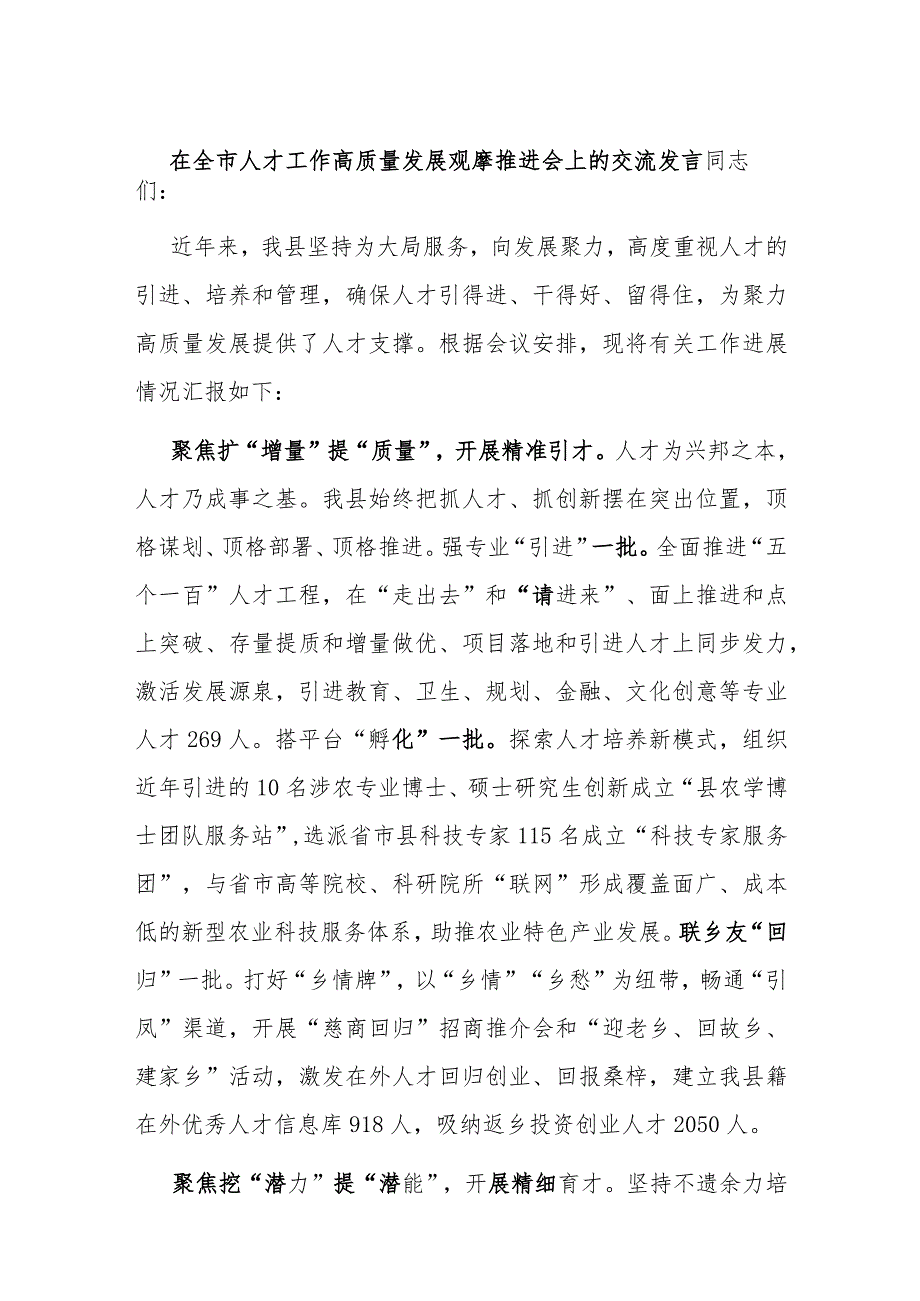 在全市人才工作高质量发展观摩推进会上的交流发言同志
们：
近年来，我县坚持为大局服务，向发展聚力，高度重视人才的
引进、培养和管理，确保人才引得进、干得好、留得住，为聚力
高质量发展提供了人才支撑。根据会议安排，现将有关工作进展
情况汇报如下：
聚焦扩“增量”提“质量”，开展精准引才。人才为兴邦之本，
人才乃成事之基。我县始终把抓人才、抓创新摆在突出位置，顶
格谋划、顶格部署、顶格推进。强专业“引进”一批。全面推进“五
个一百”人才工程，在“走出去”和“请进来”、面上推进和点
上突破、存量提质和增量做优、项目落地和引进人才上同步发力，
激活发展源泉，引进教育、卫生、规划、金融、文化创意等专业
人才 269 人。搭平台“孵化”一批。探索人才培养新模式，组织
近年引进的 10 名涉农专业博士、硕士研究生创新成立“县农学博
士团队服务站”,选派省市县科技专家 115 名成立“科技专家服务
团”，与省市高等院校、科研院所“联网”形成覆盖面广、成本
低的新型农业科技服务体系，助推农业特色产业发展。联乡友“回
归”一批。打好“乡情牌”，以“乡情”“乡愁”为纽带，畅通“引
凤”渠道，开展“慈商回归”招商推介会和“迎老乡、回故乡、
建家乡”活动，激发在外人才回归创业、回报桑梓，建立我县籍
在外优秀人才信息库 918 人，吸纳返乡投资创业人才 2050 人。
聚焦挖“潜力”提“潜能”，开展精细育才。坚持不遗余力培